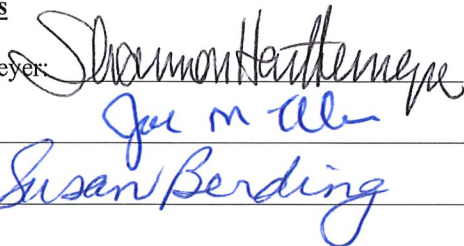 s
eyer: Shannon Hartkemeyer
Joe M
Susan Berding